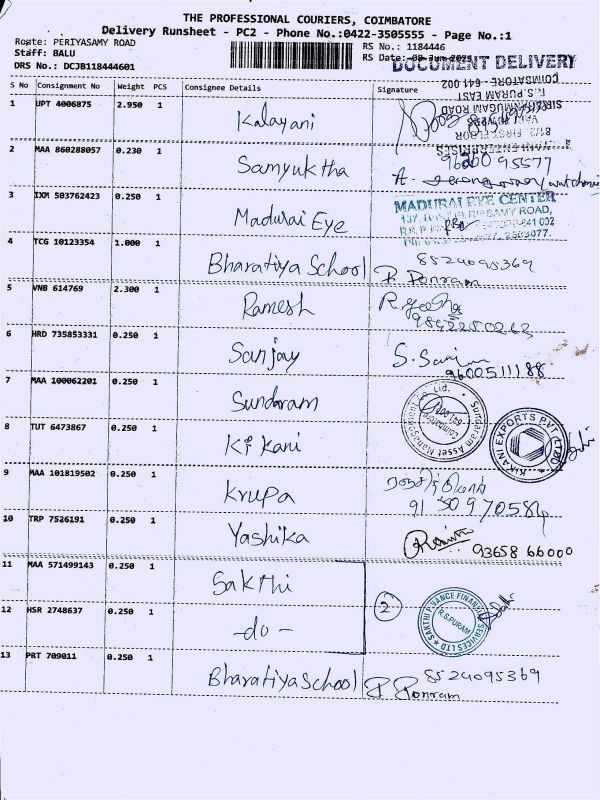 THE PROFESSIONAL COURIERS, COIMBATORE
Delivery Runsheet - PC2 - Phone No.:0422-3505555 - Page No.:1
Route: PERIYASAMY ROAD
RS No.: 1184446
Staff: BALU
RS Date:
DOCUMENT DELIVERY
DRS No.: DCJB118444601
S No Consignment No Weight PCS Consignee Details Signature
1 UPT 4006875 2.950 1 Kalayani
R.S. PURAM EAST
COIMBATORE - 641 002
2 MAA 860288057 0.230 1 Samyuktha
95577
3 IXM 503762423 0.250 1 Madurai Eye
MADURAI EYE CENTER
4 TCG 10123354 1.000 1 Bharatiya School 8524095369
P. Ponram
5 VNB 614769 2.300 1 Ramesh
6 HRD 735853331 0.250 1 Sanjay
9600511188
7 MAA 100062201 0.250 1 Sundaram
Sundaram Asset Management
8 TUT 6473867 0.250 1 Kikani
KIKANI EXPORTS PVT LTD
9 MAA 101819502 0.250 1 Krupa
10 TRP 7526191 0.250 1 Yashika
93658 66000
11 MAA 571499143 0.250 1 Sakthi
12 HSR 2748637 0.250 1 -do- 2
SAKTHI FINANCE FINANCIAL SERVICES LTD
R.S.PURAM
13 PRT 709011 0.250 1 Bharatiya School 8524095369
P. Ponram